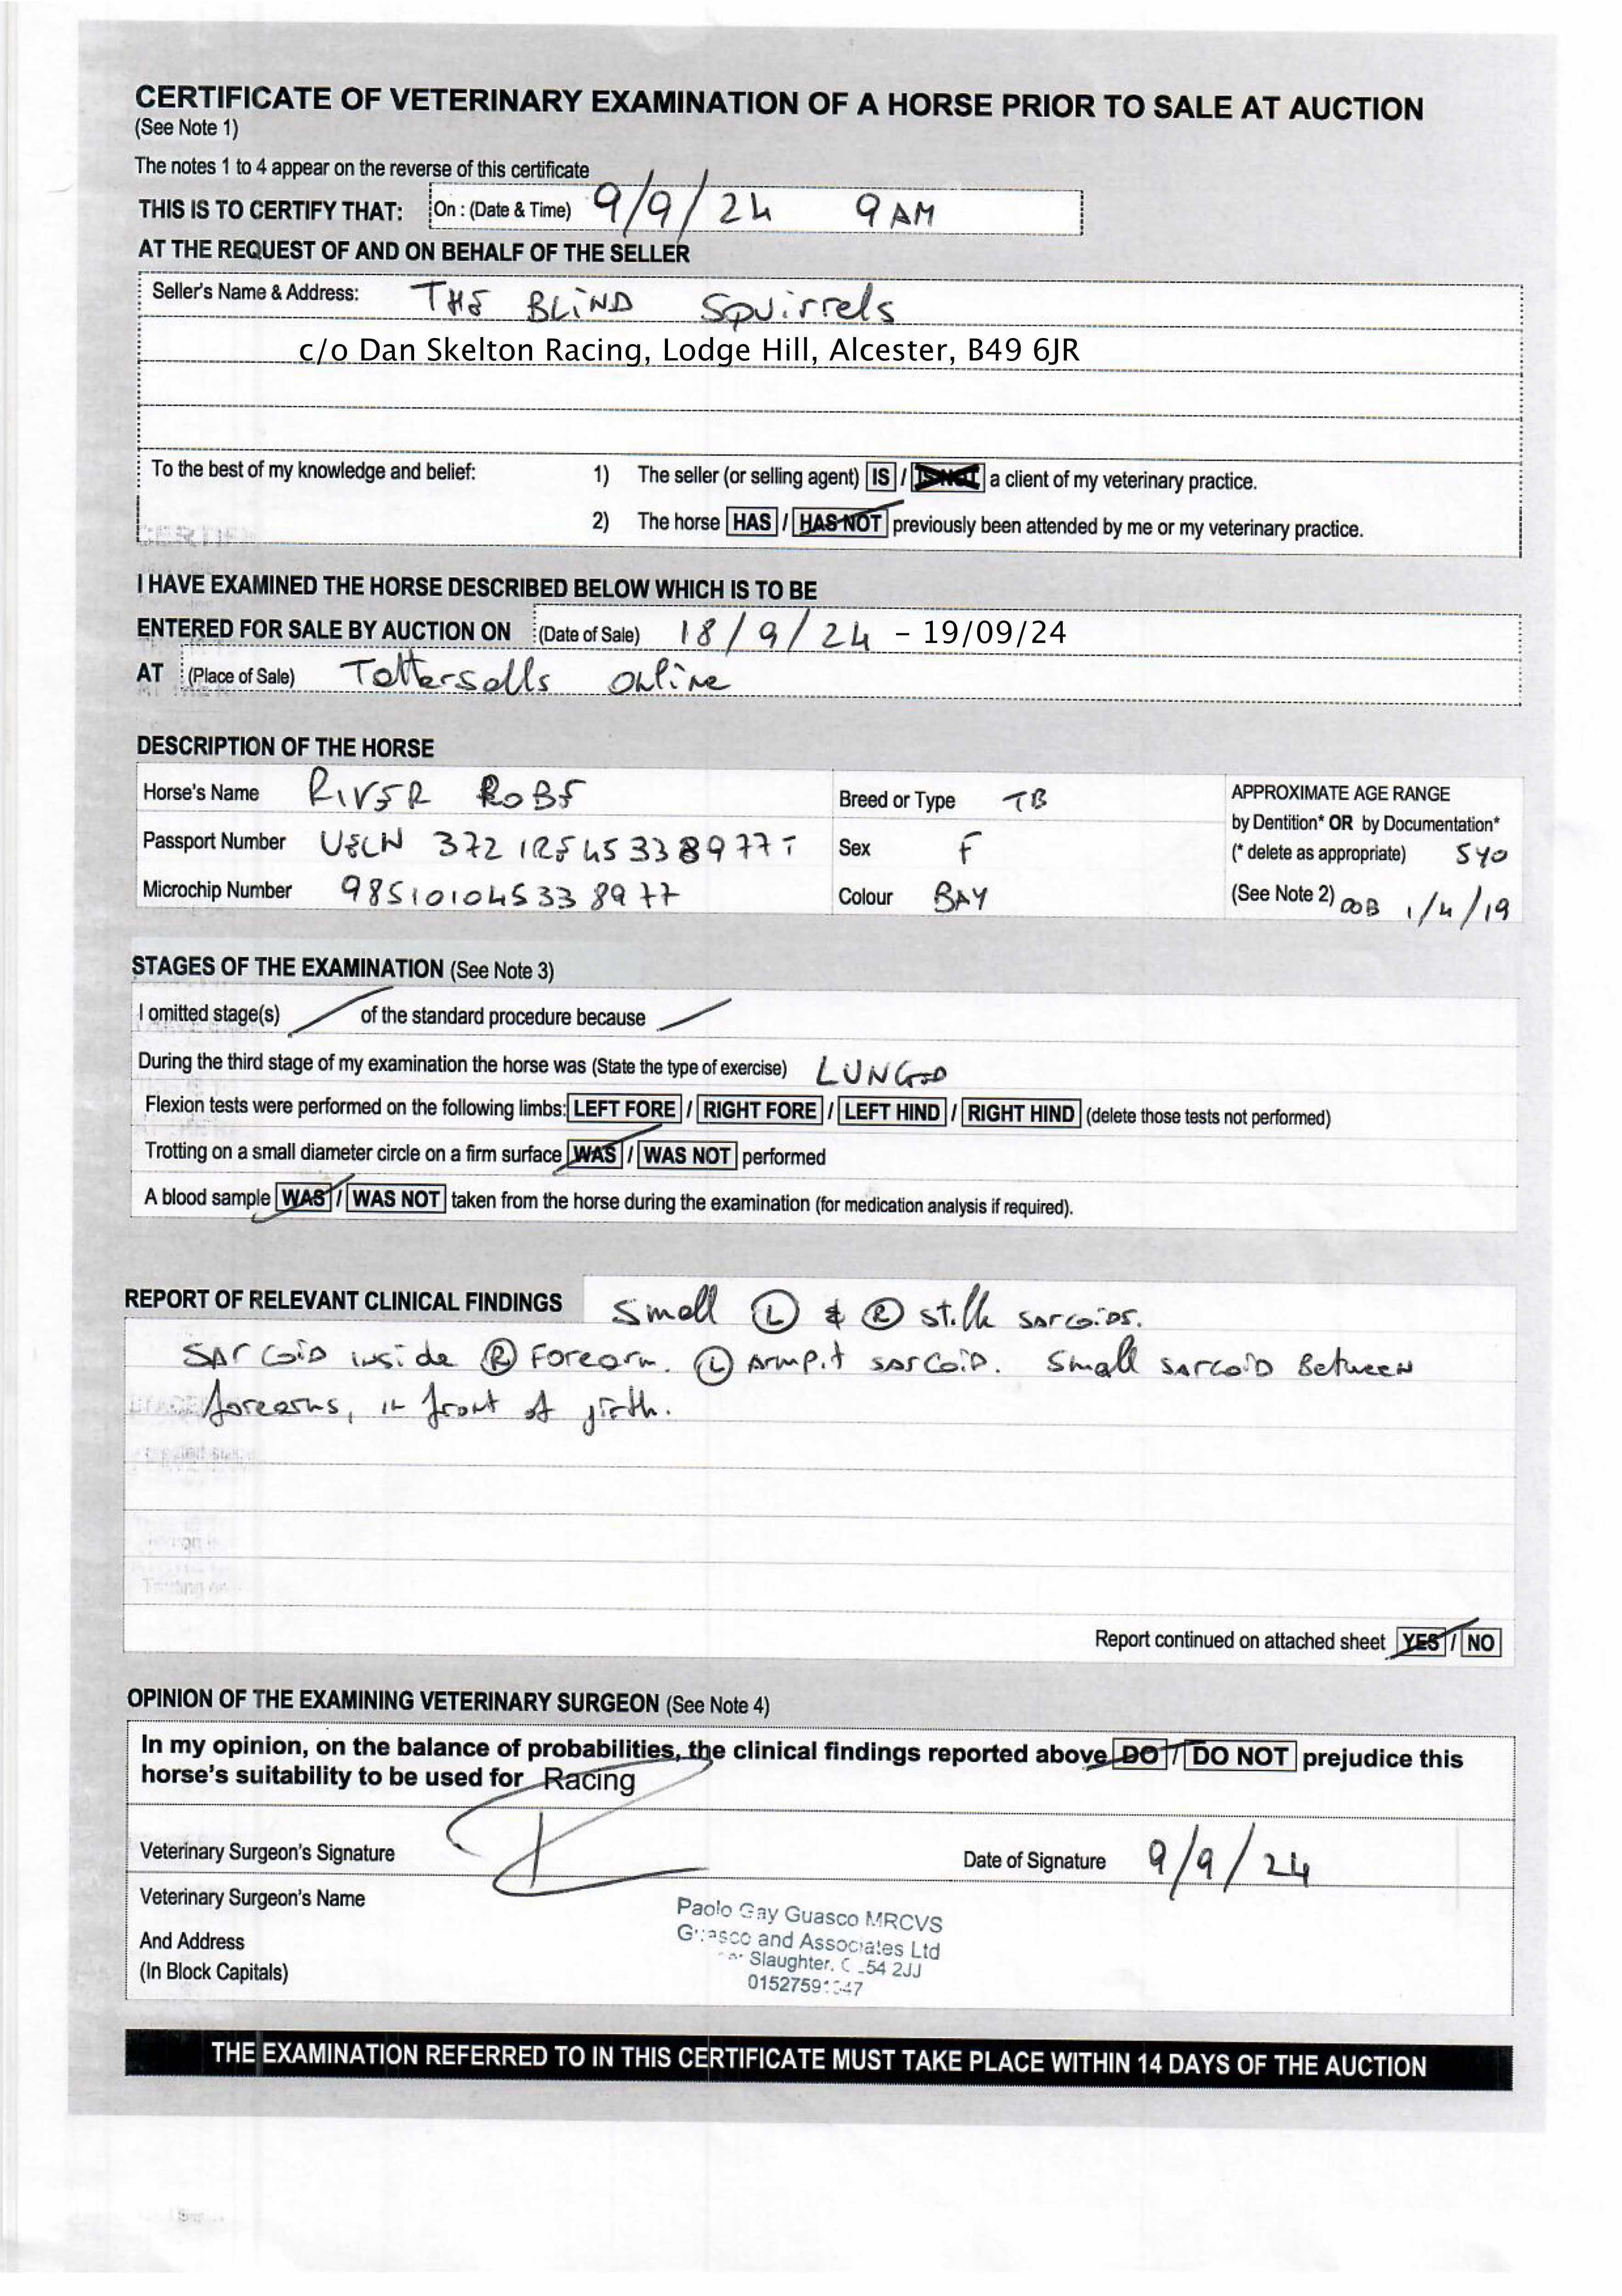 CERTIFICATE OF VETERINARY EXAMINATION OF A HORSE PRIOR TO SALE AT AUCTION
(See Note 1)
The notes 1 to 4 appear on the reverse of this certificate
THIS IS TO CERTIFY THAT: On : (Date & Time) 9/9/24 9 AM
AT THE REQUEST OF AND ON BEHALF OF THE SELLER
Seller's Name & Address: THE BLIND Squirrels
c/o Dan Skelton Racing, Lodge Hill, Alcester, B49 6JR
To the best of my knowledge and belief: 1) The seller (or selling agent) IS / IS NOT a client of my veterinary practice.
2) The horse HAS / HAS NOT previously been attended by me or my veterinary practice.
I HAVE EXAMINED THE HORSE DESCRIBED BELOW WHICH IS TO BE
ENTERED FOR SALE BY AUCTION ON (Date of Sale) 18/9/24 - 19/09/24
AT (Place of Sale) Tattersalls Online
DESCRIPTION OF THE HORSE
Horse's Name RIVER ROBE Breed or Type TB APPROXIMATE AGE RANGE
by Dentition* OR by Documentation*
Passport Number UELN 372 Sex F (* delete as appropriate) 5YO
Microchip Number 985101045338977 Colour BAY (See Note 2) DOB 1/4/19
STAGES OF THE EXAMINATION (See Note 3)
I omitted stage(s) of the standard procedure because
During the third stage of my examination the horse was (State the type of exercise) LUNGED
Flexion tests were performed on the following limbs: LEFT FORE / RIGHT FORE / LEFT HIND / RIGHT HIND (delete those tests not performed)
Trotting on a small diameter circle on a firm surface WAS / WAS NOT performed
A blood sample WAS / WAS NOT taken from the horse during the examination (for medication analysis if required).
REPORT OF RELEVANT CLINICAL FINDINGS Small L & R sarcoids.
Sarcoid inside R Forearm. L Armpit sarcoid. Small sarcoid Between
forearms, in front of girth.
Report continued on attached sheet YES / NO
OPINION OF THE EXAMINING VETERINARY SURGEON (See Note 4)
In my opinion, on the balance of probabilities, the clinical findings reported above DO / DO NOT prejudice this
horse's suitability to be used for Racing
Veterinary Surgeon's Signature Date of Signature 9/9/24
Veterinary Surgeon's Name
And Address
(In Block Capitals)
Paolo Gay Guasco MRCVS
Guasco and Associates Ltd
Slaughter, 54 2JJ
THE EXAMINATION REFERRED TO IN THIS CERTIFICATE MUST TAKE PLACE WITHIN 14 DAYS OF THE AUCTION